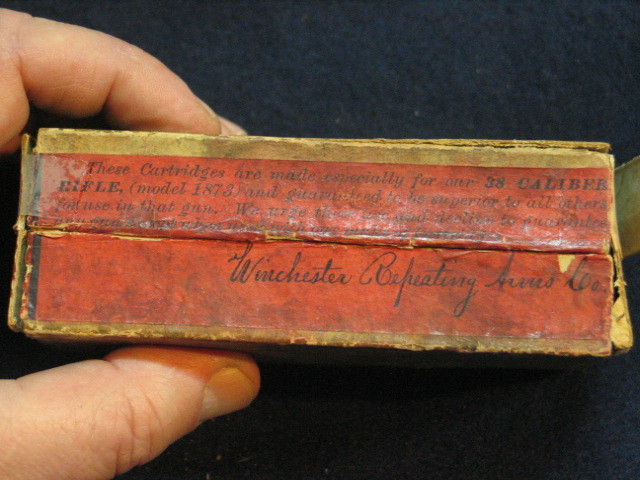 These Cartridges are made especially for our 38 CALIBER
RIFLE, (model 1873) and guaranteed to be superior to all others
for use in that gun. We urge their use and decline to guarantee
our guns when
Winchester Repeating Arms Co.